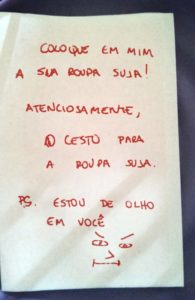 COLOQUE EM MIM
A SUA ROUPA SUJA!
ATENCIOSAMENTE,
O CESTO PARA
A ROUPA SUJA.
PS. ESTOU DE OLHO
EM VOCÊ